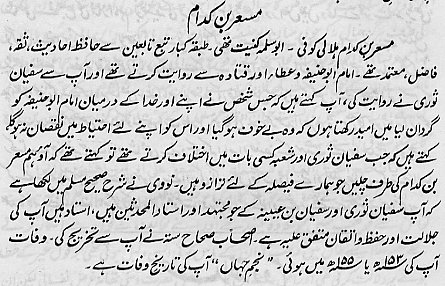 مسعر بن کدام
مسعر بن کدام ہلالی کوفی۔ ابوسلمہ کنیت تھی۔ طبقہ کبار تبع تابعین سے حافظ احادیث، ثقہ،
فاضل، معتمد تھے۔ امام ابوحنیفہ و عطاء اور قتادہ سے روایت کرتے تھے اور آپ سے سفیان
ثوری نے روایت کی، آپ کہتے ہیں کہ جس شخص نے اپنے اور خدا کے درمیان امام ابوحنیفہ کو
گردان لیا میں امید رکھتا ہوں کہ وہ بے خوف ہو گیا اور اس کو اپنے لئے احتیاط میں نقصان نہ ہوگا
کہتے ہیں کہ جب سفیان ثوری اور شعبہ کسی بات میں اختلاف کرتے تھے تو کہتے تھے کہ آؤ ہم مسعر
بن کدام کی طرف چلیں جو ہمارے فیصلہ کے لئے ترازو ہیں۔ نووی نے شرح صحیح مسلم میں لکھا ہے
کہ آپ سفیان ثوری اور سفیان بن عیینہ کے جو مجتہد اور استاد المحدثین ہیں، استاد ہیں آپ کی
جلالت اور حفظ و اتقان متفق علیہ ہے۔ اصحاب صحاح ستہ نے آپ سے تخریج کی۔ وفات
آپ کی ۱۵۳ھ یا ۱۵۵ھ میں ہوئی۔ "نجم جہاں" آپ کی تاریخ وفات ہے۔